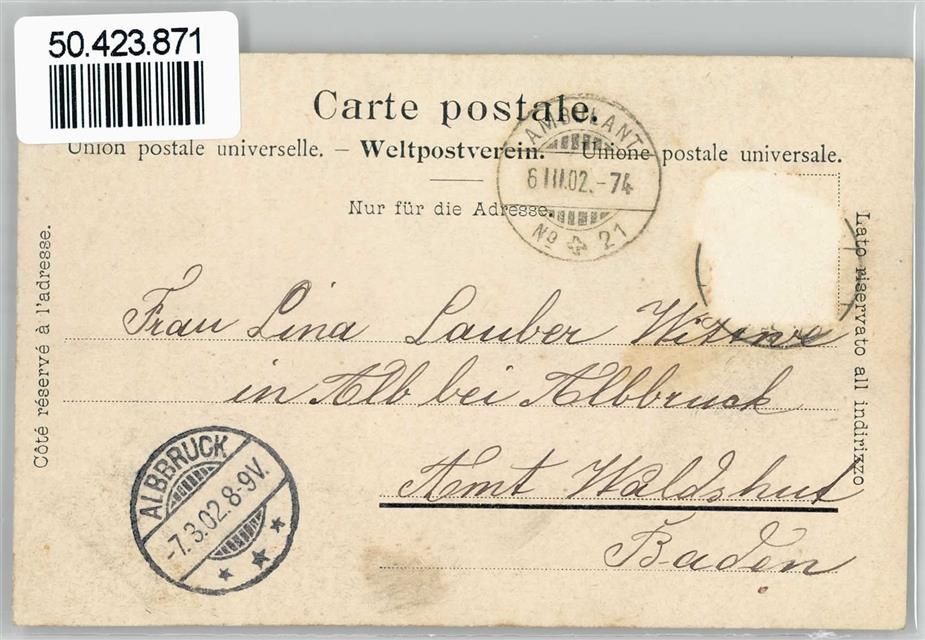 50.423.871
Carte postale.
Union postale universelle. – Weltpostverein. – Unione postale universale.
Nur für die Adresse.
AMBULANT
6 III.02.-74
No 21
Côté réservé à l'adresse.
Lato riservato all indirizzo
Frau Lina Lauber Wittwe
in Alb bei Albbruck
Amt Waldshut
Baden
ALBBRUCK
-7.3.02.8-9V.